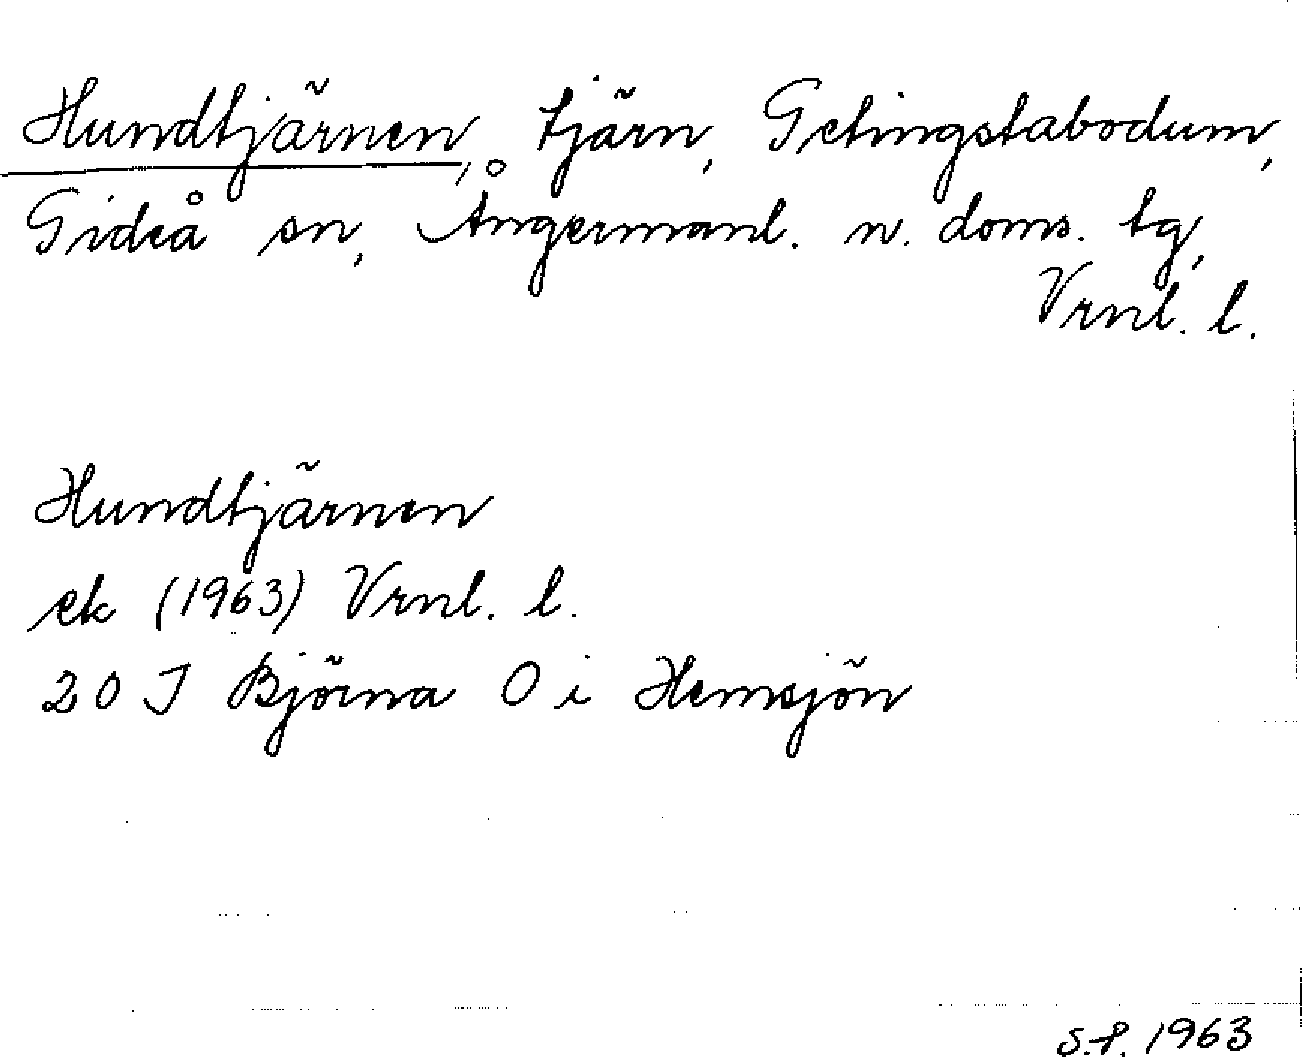 Hundtjärnen, tjärn, Getingstabodum,
Gideå sn, Ångermanl. n. doms. tg,
Vrnl. l.
Hundtjärnen
ek (1963) Vrnl. l.
20 J Björna O i Hemsjön
S.P. 1963